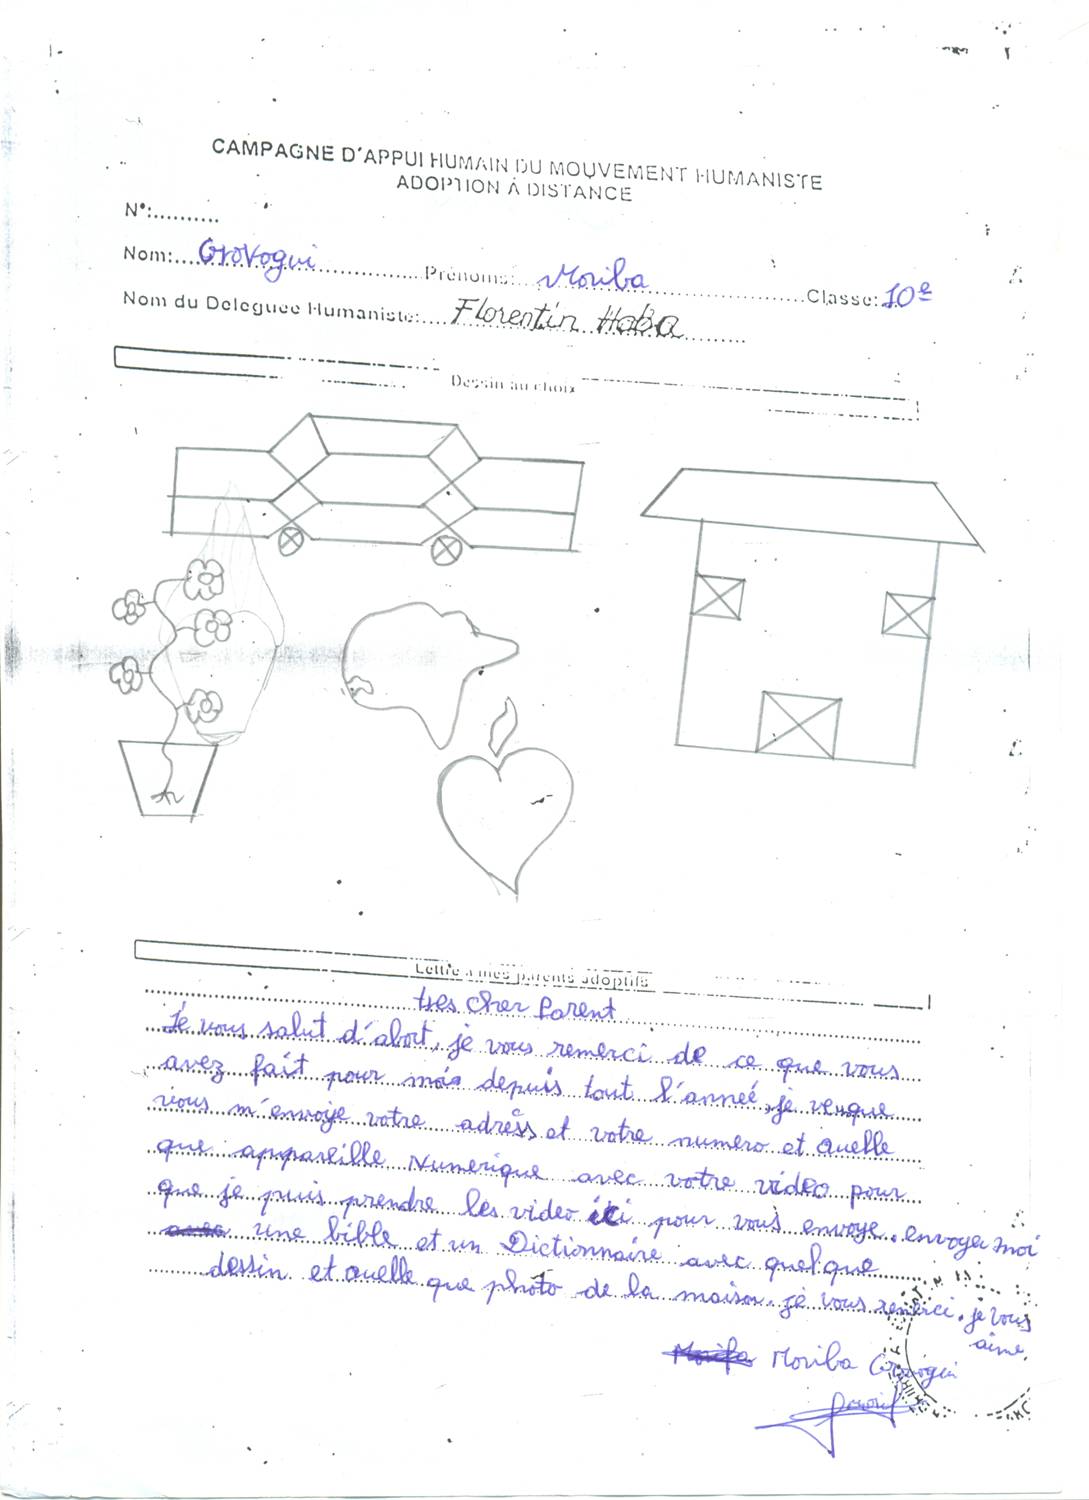 CAMPAGNE D'APPUI HUMAIN DU MOUVEMENT HUMANISTE
ADOPTION À DISTANCE
N°:..........
Nom:....Grovogui..............Prénoms:....Moriba......................Classe:10e
Nom du Deleguée Humaniste:....Florentin Haba..........
Dessin au choix
Lettre à mes parents adoptifs
tres cher Parent
Je vous salut d'abort, je vous remerci de ce que vous
avez fait pour moi depuis tout l'anneé, je veuque
vous m'envoye votre adrèss et votre numero et quelle
que appareille Numerique avec votre video pour
que je puis prendre les video ici pour vous envoye. envoyer moi
une bible et un Dictionnaire avec quelque
dessin et quelle que photo de la maison. je vous remerci. je vous
aime.
Moriba Grovogui